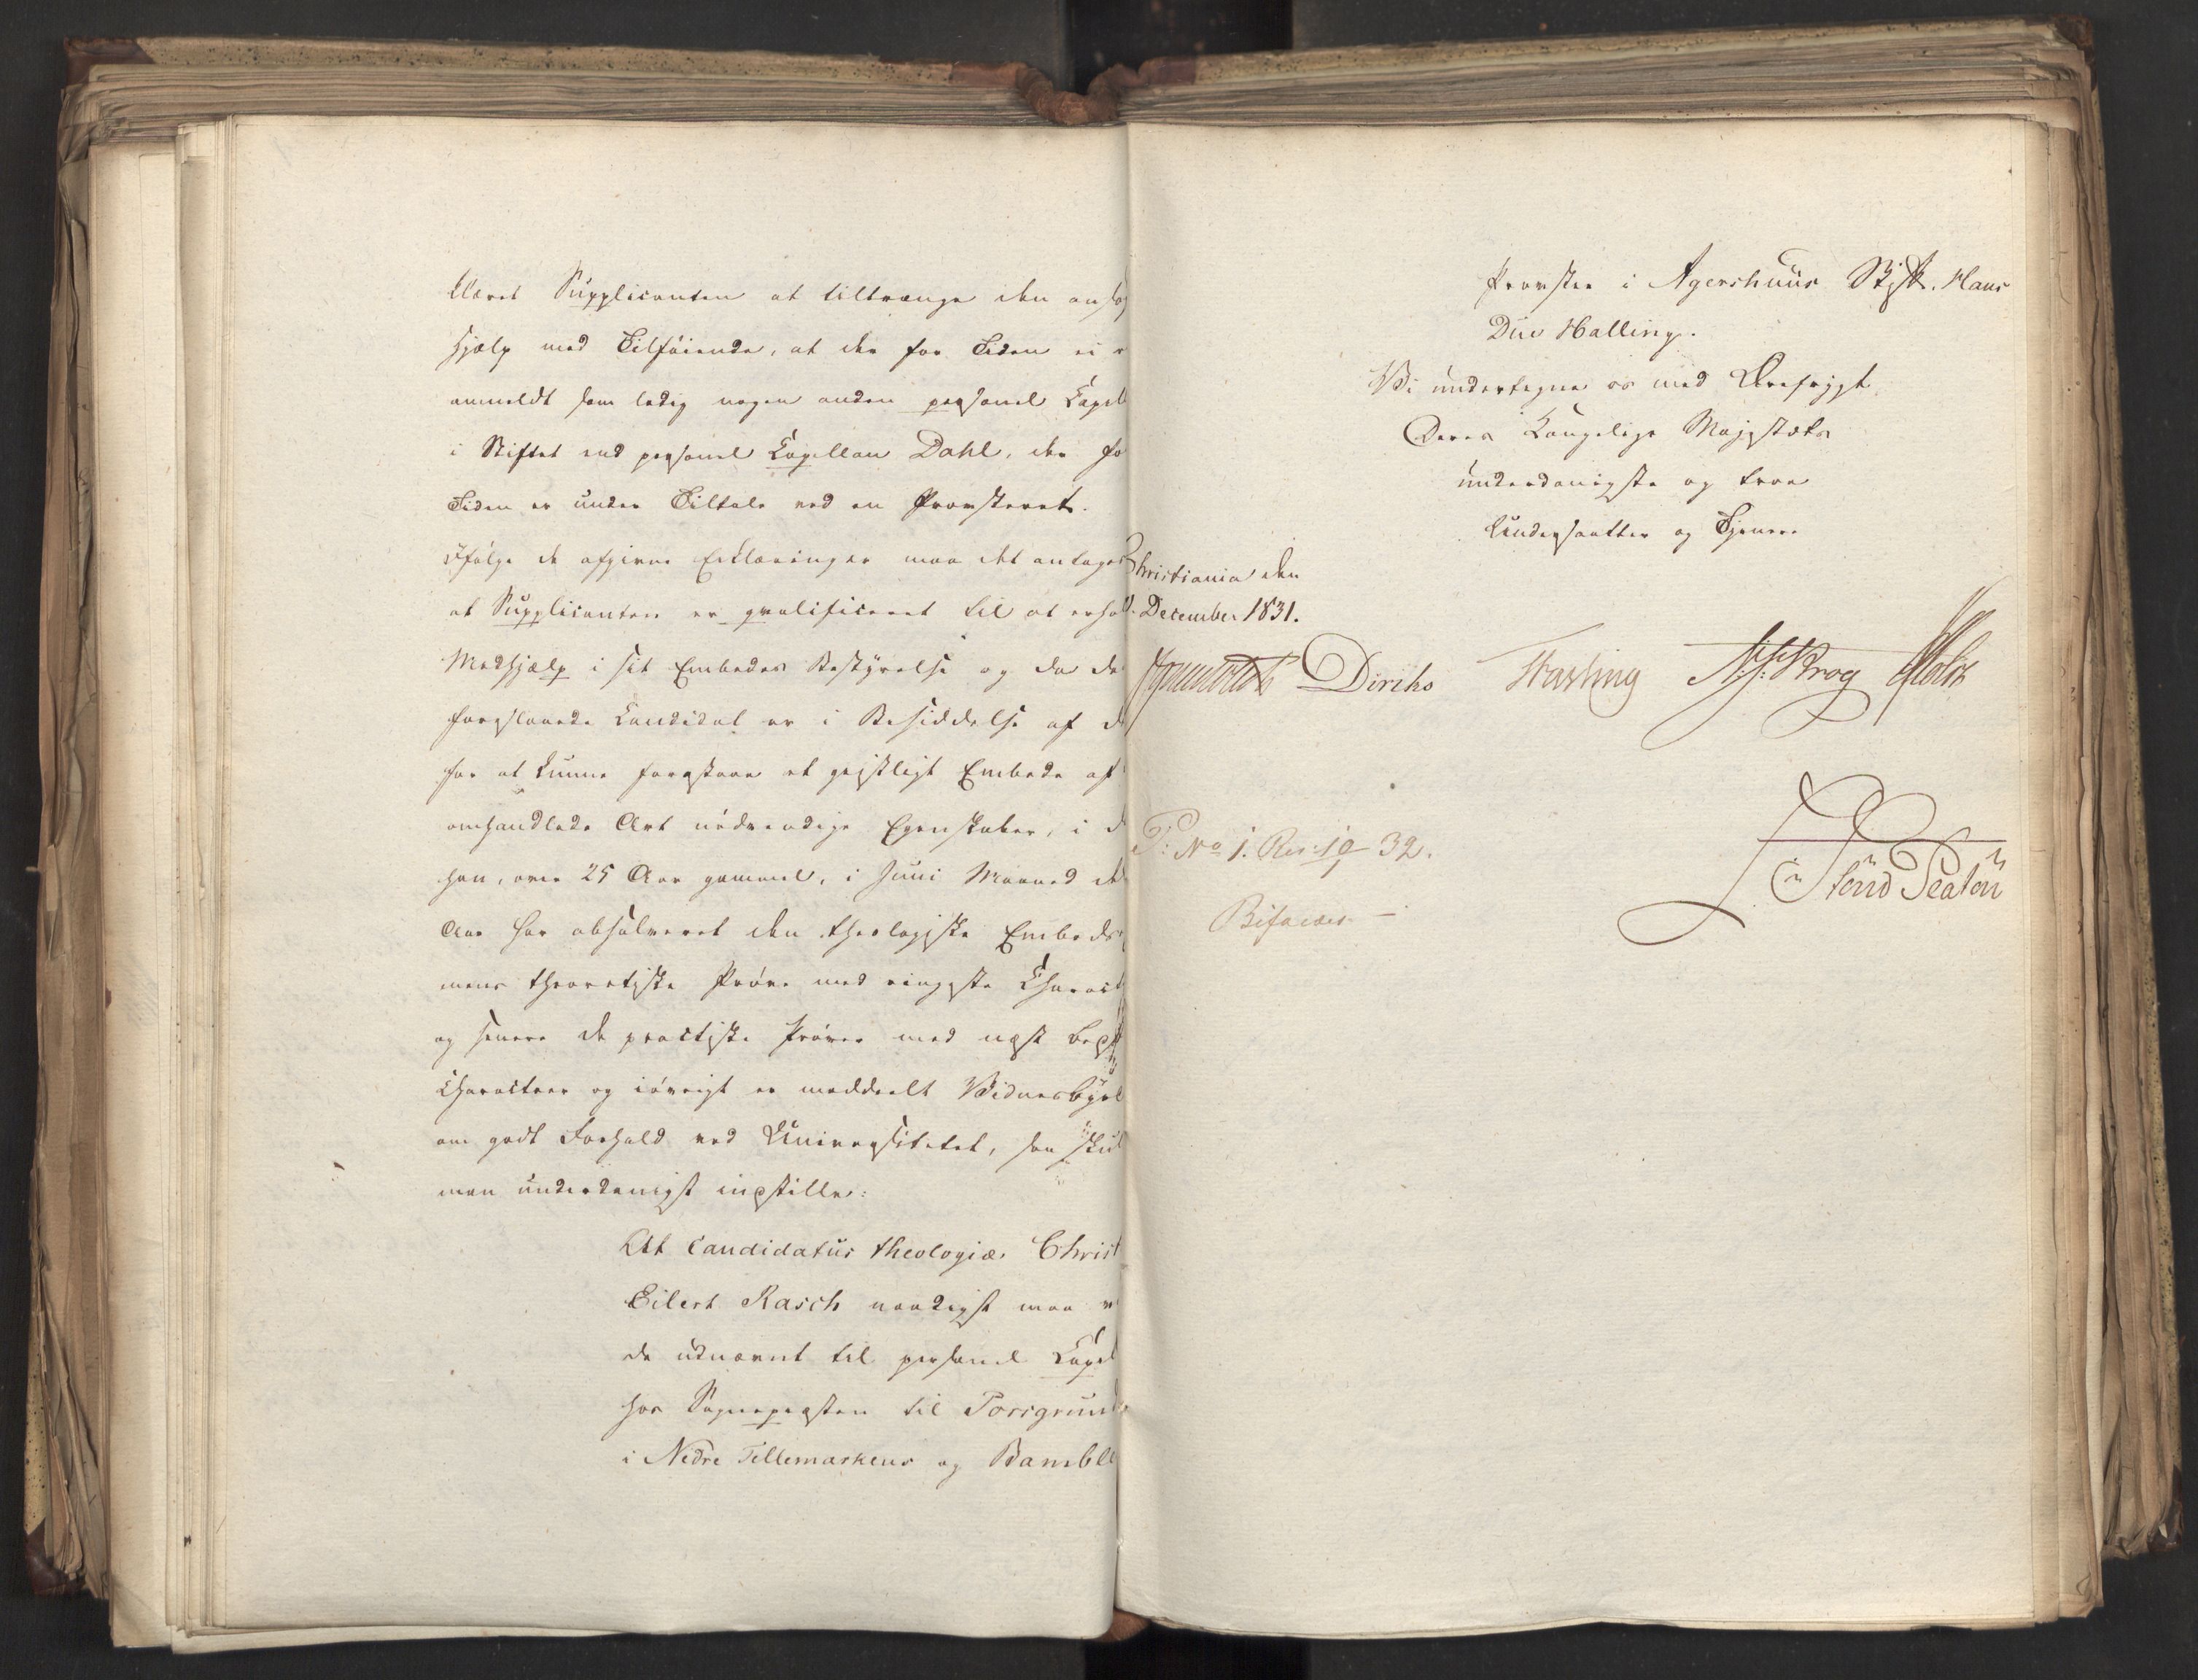 klæret Supplicanten at tiltrænge den ansøg
Hjælp med Tilføiende, at der for Tiden ei
anmeldt som ledig nogen anden personel Capel
i Stiftet end personel Capellan Dahl, der fo
Tiden er under Tiltale ved en Provsteret.
Ifølge de afgivne Erklæringer maa det antages
at Supplicanten er qvalificeret til at erhol
Medhjælp i sit Embedes Bestyrelse og da de
foreslaaede Candidat er i Besiddelse af d
for at kunne forestaae et geistligt Embede af
omhandlede Art nödvendige Egenskaber, i d
han, over 25 Aar gammel, i Juni Maaned d
Aar har absolveret den theologiske Embeds
mens theoretiske Prøve med ringeste Charact
og senere de practiske Prøver med næst bedst
Characteer og iøvrigt er meddeelt Vidnesbyrd
om godt Forhold ved Universitetet, saa skul
man underdanigst indstille:
At Candidatus theologiæ Christ
Eilert Rasch naadigst maa v
de udnævnt til personel Capel
hos Sognepresten til Porsgrund
i Nedre Tellemarkens og Bamble
Provstier i Agershuus Stift. Hans
Due Halling.
Vi undertegne os med Ærefrygt
Deres Kongelige Majestæts
underdanigste og troe
Undersaatter og Tjenere
Christiania den
December 1831.
Diriks Fasting Krog Holst
P: No 1. Res: 10/1 32.
Bifaldes —